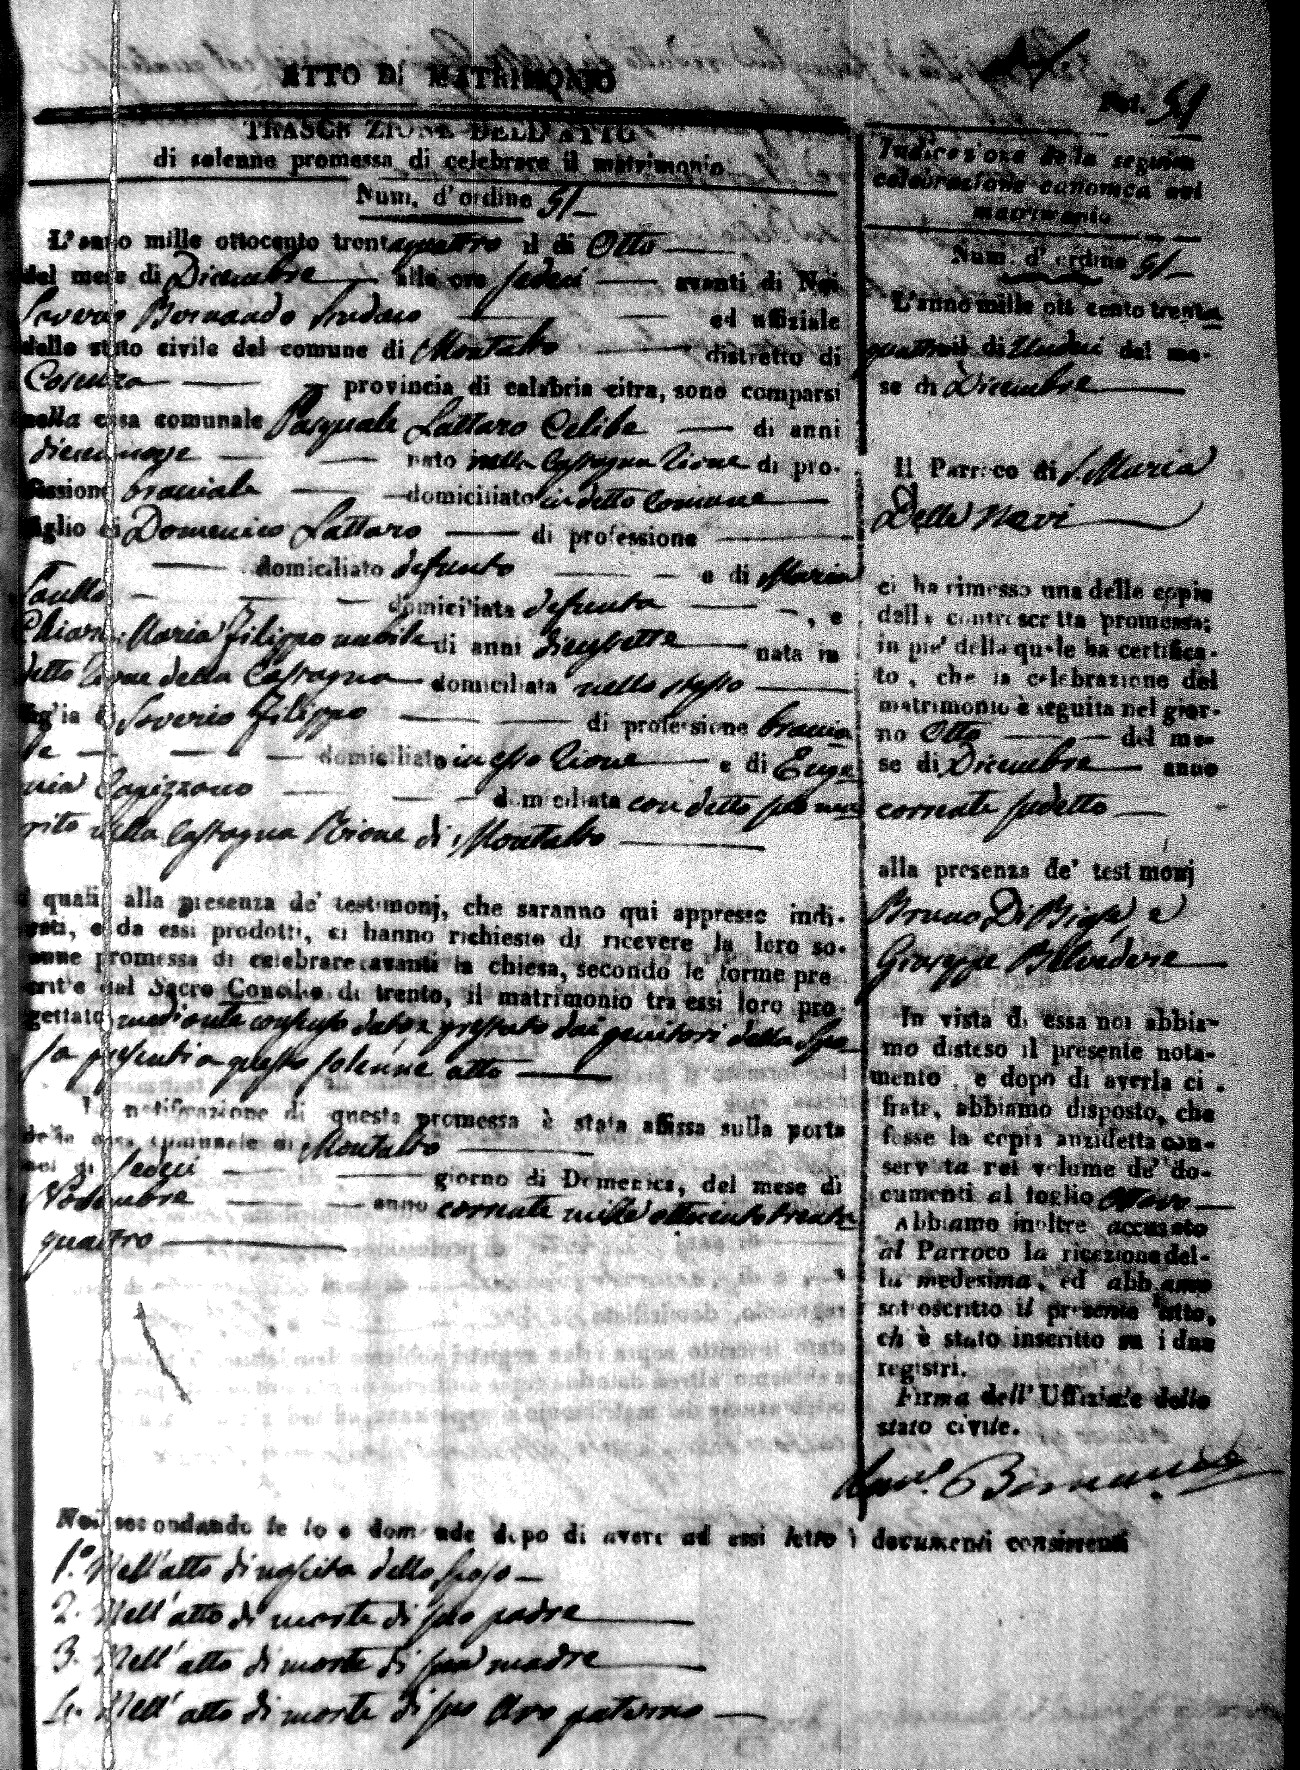 ATTO DI MATRIMONIO
Fol. 51
TRASCRIZIONE DELL'ATTO
di solenne promessa di celebrare il matrimonio
Num. d'ordine 51
L'anno mille ottocento trentaquattro il dì Otto
del mese di Dicembre alle ore sedici avanti di Noi
Saverio Bernando Sindaco ed uffiziale
dello stato civile del comune di Montalto distretto di
Cosenza provincia di calabria citra, sono comparsi
nella casa comunale Pasquale Lattaro Celibe di anni
diecinnove nato nella Castagna Rione di pro-
fessione bracciale domiciliato in detto Comune
figlio di Domenico Lattaro di professione
domiciliato defunto e di Maria
domiciliata defunta , e
Chiara Maria Filippo nubile di anni diecisette nata in
detto Rione della Castagna domiciliata nello stesso
figlia di Saverio Filippo di professione braccia
le domiciliato in esso Rione e di Euge
nia domiciliata con detto suo ma
rito nella Castagna Rione di Montalto
i quali alla presenza de' testimonj, che saranno qui appresso indi-
cati, e da essi prodotti, ci hanno richiesto di ricevere la loro so-
lenne promessa di celebrare avanti la chiesa, secondo le forme pre
scritte dal Sacro Concilio di trento, il matrimonio tra essi loro pro
gettato mediante consenso dato e prestato dai genitori della Spo
sa presenti a questo solenne atto
La notificazione di questa promessa è stata affissa sulla porta
della casa comunale di Montalto
nel dì sedeci giorno di Domenica, del mese di
Novembre anno corrente mille ottocento trenta
quattro
Noi secondando le loro domande dopo di avere ad essi letto i documenti consistenti
1.º Nell'atto di nascita dello Sposo
2. Nell'atto di morte di suo padre
3. Nell'atto di morte di sua madre
4. Nell'atto di morte di suo Avo paterno
Indicazione della seguita
celebrazione canonica nel
matrimonio
Num. d'ordine 51
L'anno mille ottocento trenta
quattro il dì Undeci del me-
se di Dicembre
Il Parroco di S. Maria
Della Nevi
ci ha rimesso una delle copie
della controscritta promessa;
in piè della quale ha certifica-
to, che la celebrazione del
matrimonio è seguita nel gior-
no Otto del me-
se di Dicembre anno
corrente sudetto
alla presenza de' testimonj
Bruno Di Biase, e
Giuseppe Belvedere
In vista di essa noi abbia-
mo disteso il presente nota-
mento, e dopo di averla ci-
frate, abbiamo disposto, che
fosse la copia anzidetta con-
servata nel volume de' do-
cumenti al foglio
Abbiamo inoltre accusato
al Parroco la ricezione del-
la medesima, ed abbiamo
sottoscritto il presente atto,
ch è stato inscritto su i due
registri.
Firma dell'Uffiziale dello
stato civile.